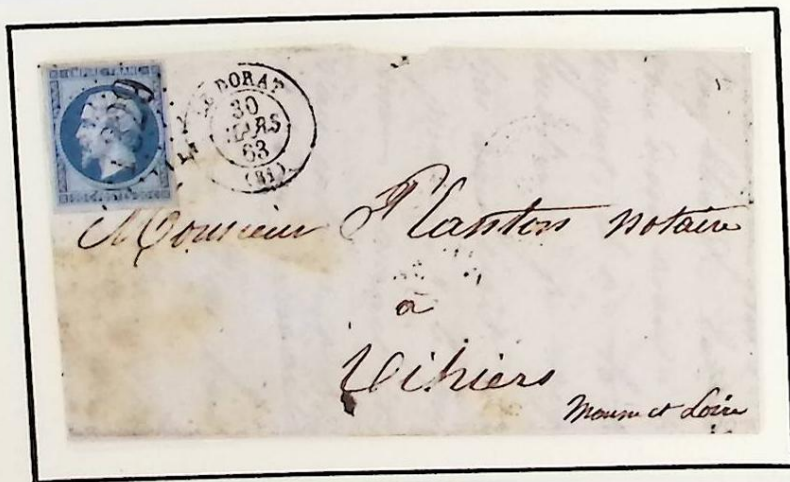 LE DORAT
30
MARS
63
(81)
Monsieur Nanston notaire
à
Vihiers
Maine et Loire